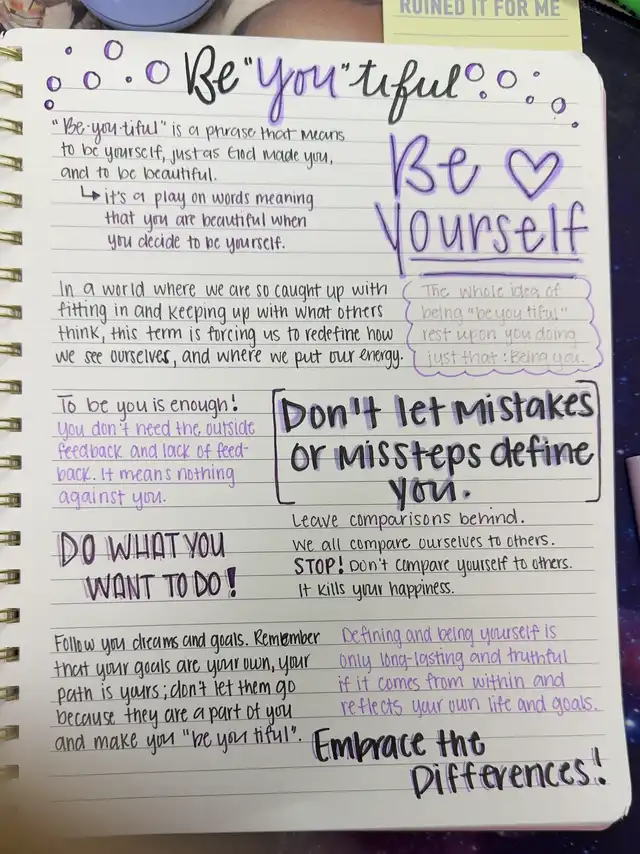 RUINED IT FOR ME
Be "you" tiful
"Be-you-tiful" is a phrase that means
to be yourself, just as God made you,
and to be beautiful.
↳ it's a play on words meaning
that you are beautiful when
you decide to be yourself.
Be ♡
Yourself
In a world where we are so caught up with
fitting in and keeping up with what others
think, this term is forcing us to redefine how
we see ourselves, and where we put our energy.
The whole idea of
being "be you tiful"
rest upon you doing
just that: Being you.
To be you is enough!
You don't need the outside
feedback and lack of feed-
back. It means nothing
against you.
Don't let mistakes
or missteps define
you.
Leave comparisons behind.
We all compare ourselves to others.
STOP! Don't compare yourself to others.
It kills your happiness.
DO WHAT YOU
WANT TO DO!
Follow you dreams and goals. Remember
that your goals are your own, your
path is yours; don't let them go
because they are a part of you
and make you "be you tiful".
Defining and being yourself is
only long-lasting and truthful
if it comes from within and
reflects your own life and goals.
Embrace the
Differences!